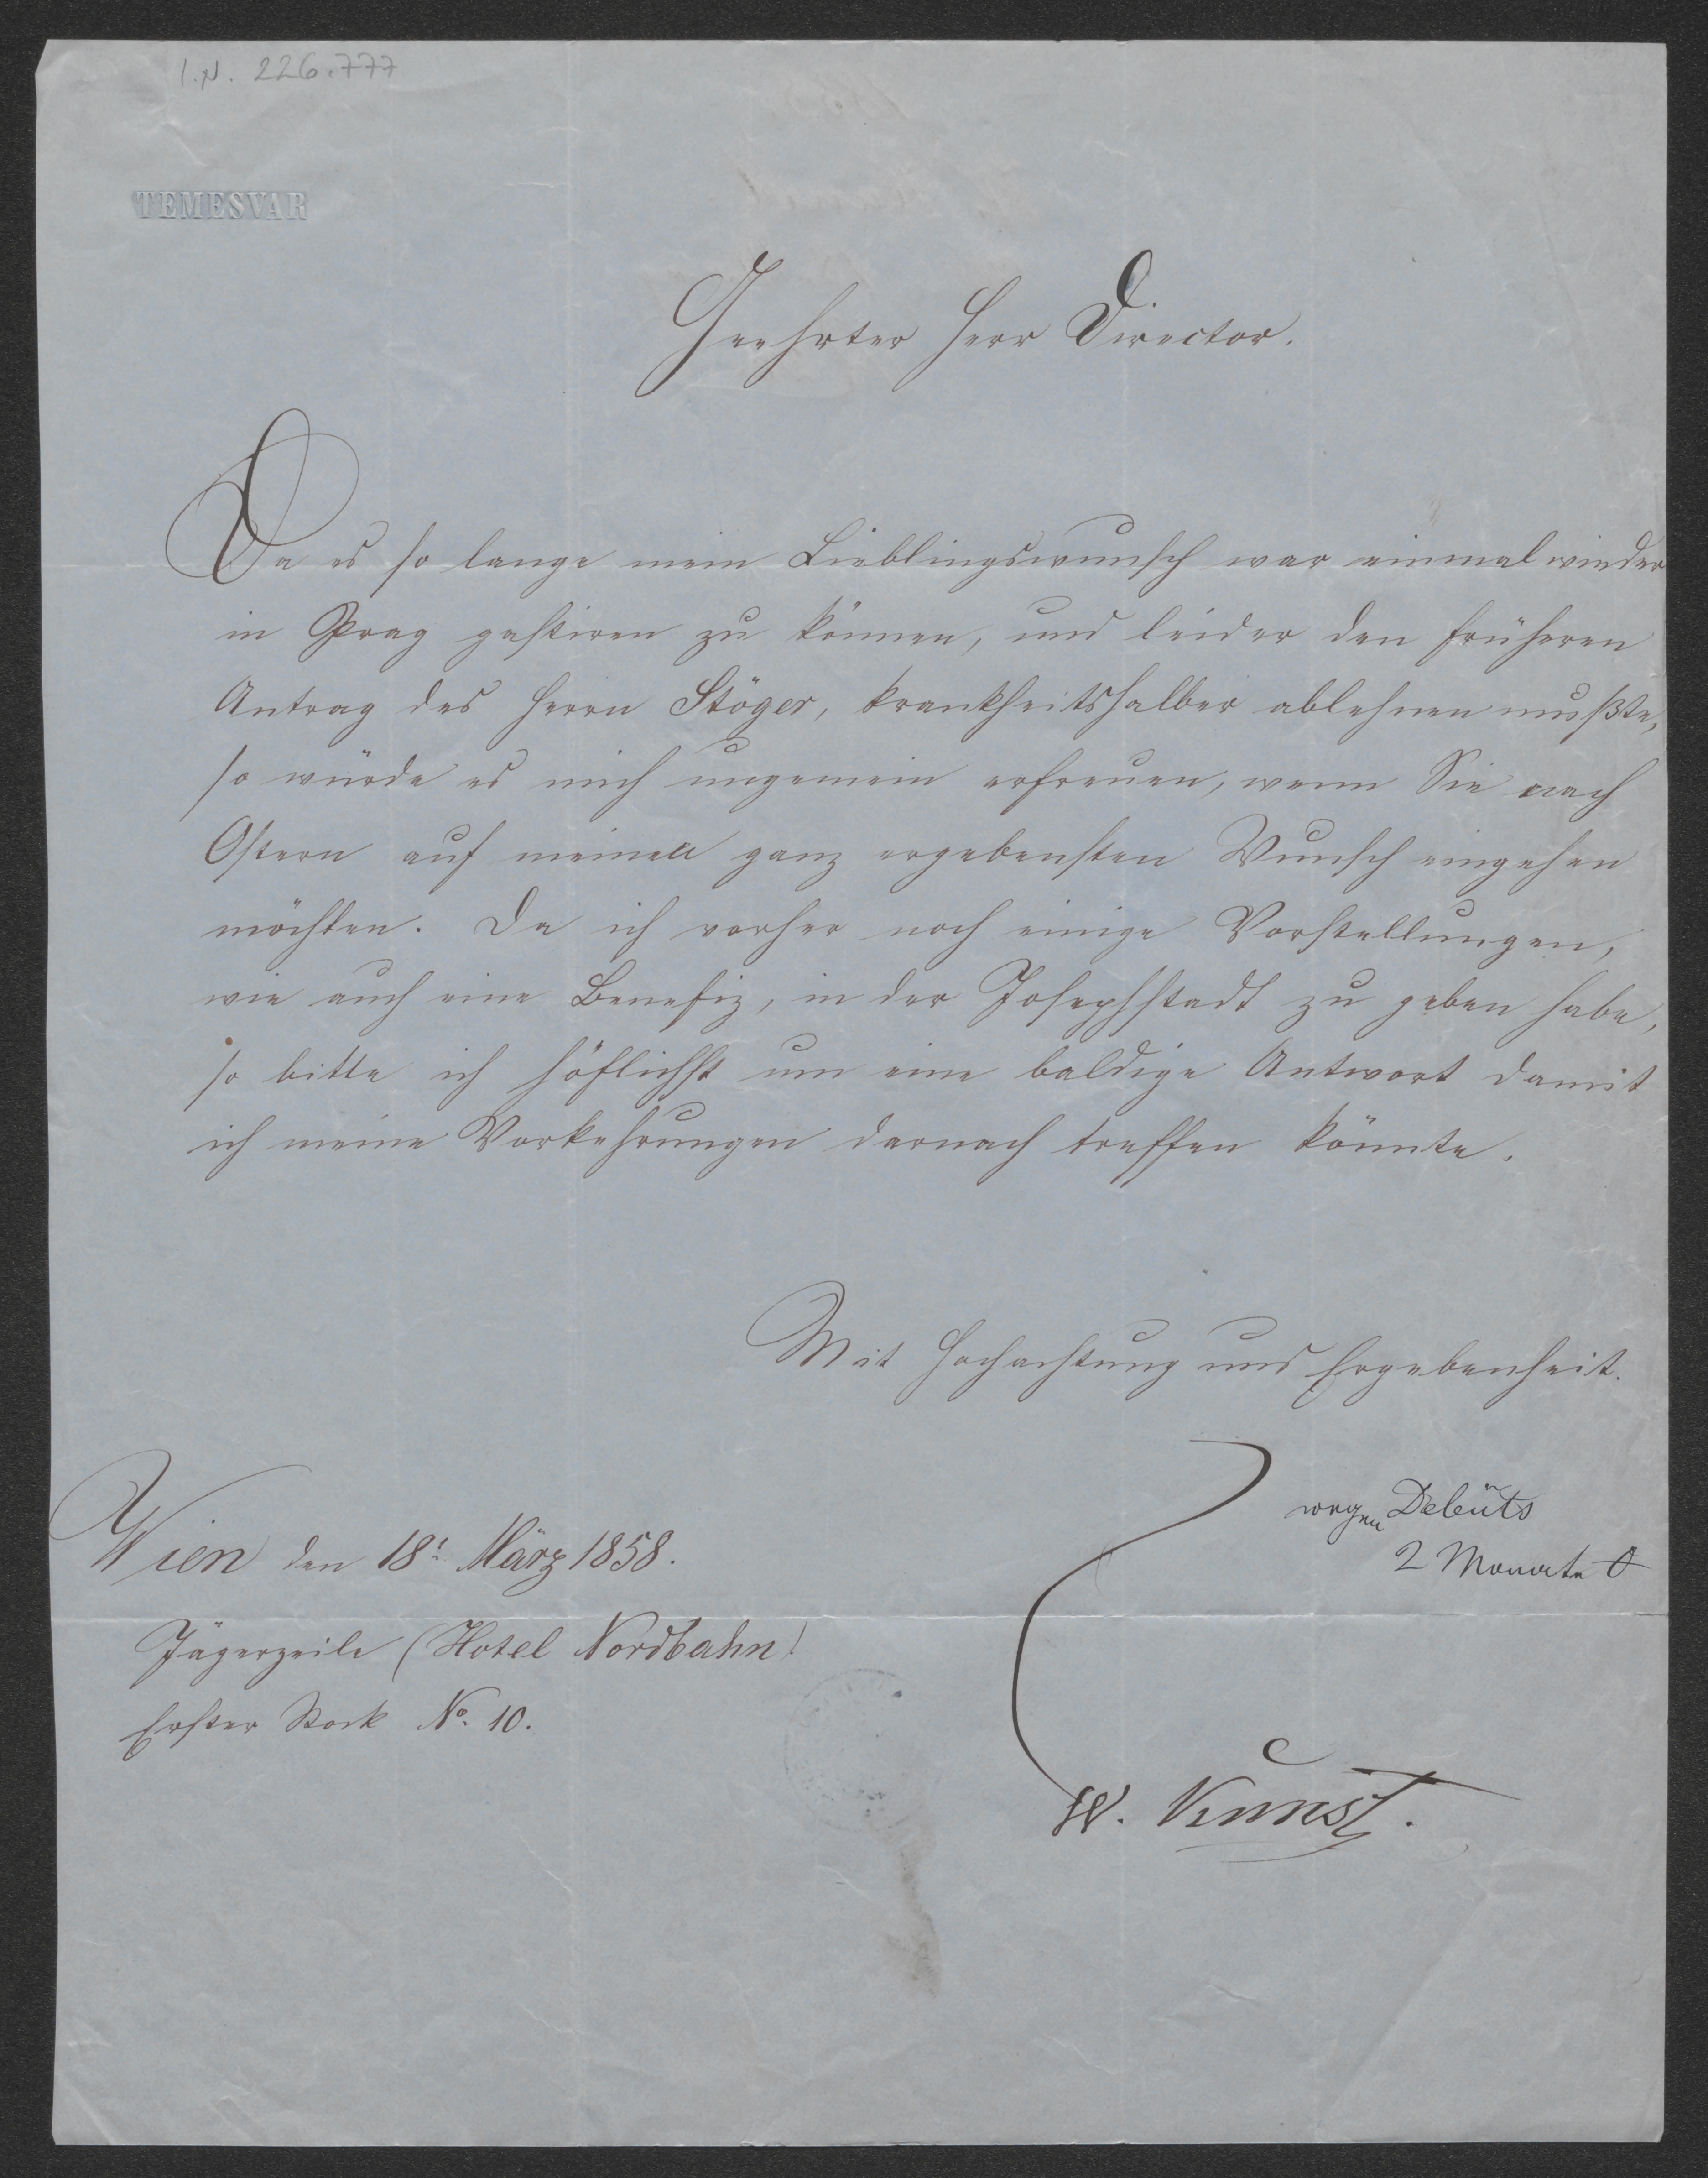 I.N. 226.777
TEMESVAR
Geehrter Herr Director.
Da es so lange mein Lieblingswunsch war einmal wieder
in Prag gastiren zu können, und leider den früheren
Antrag des Herrn Stöger, krankheitshalber ablehnen mußte,
so würde es mich ungemein erfreuen, wenn Sie nach
Ostern auf meinen ganz ergebensten Wunsch eingehen
möchten. Da ich vorher noch einige Vorstellungen,
wie auch eine Benefiz, in der Josephstadt zu geben habe,
so bitte ich höflichst um eine baldige Antwort damit
ich meine Vorkehrungen darnach treffen könnte.
Mit Hochachtung und Ergebenheit.
wegen Debüts
2 Monate
Wien den 18t März 1858.
Jägerzeile (Hotel Nordbahn)
Erster Stock No. 10.
W. Kunst.